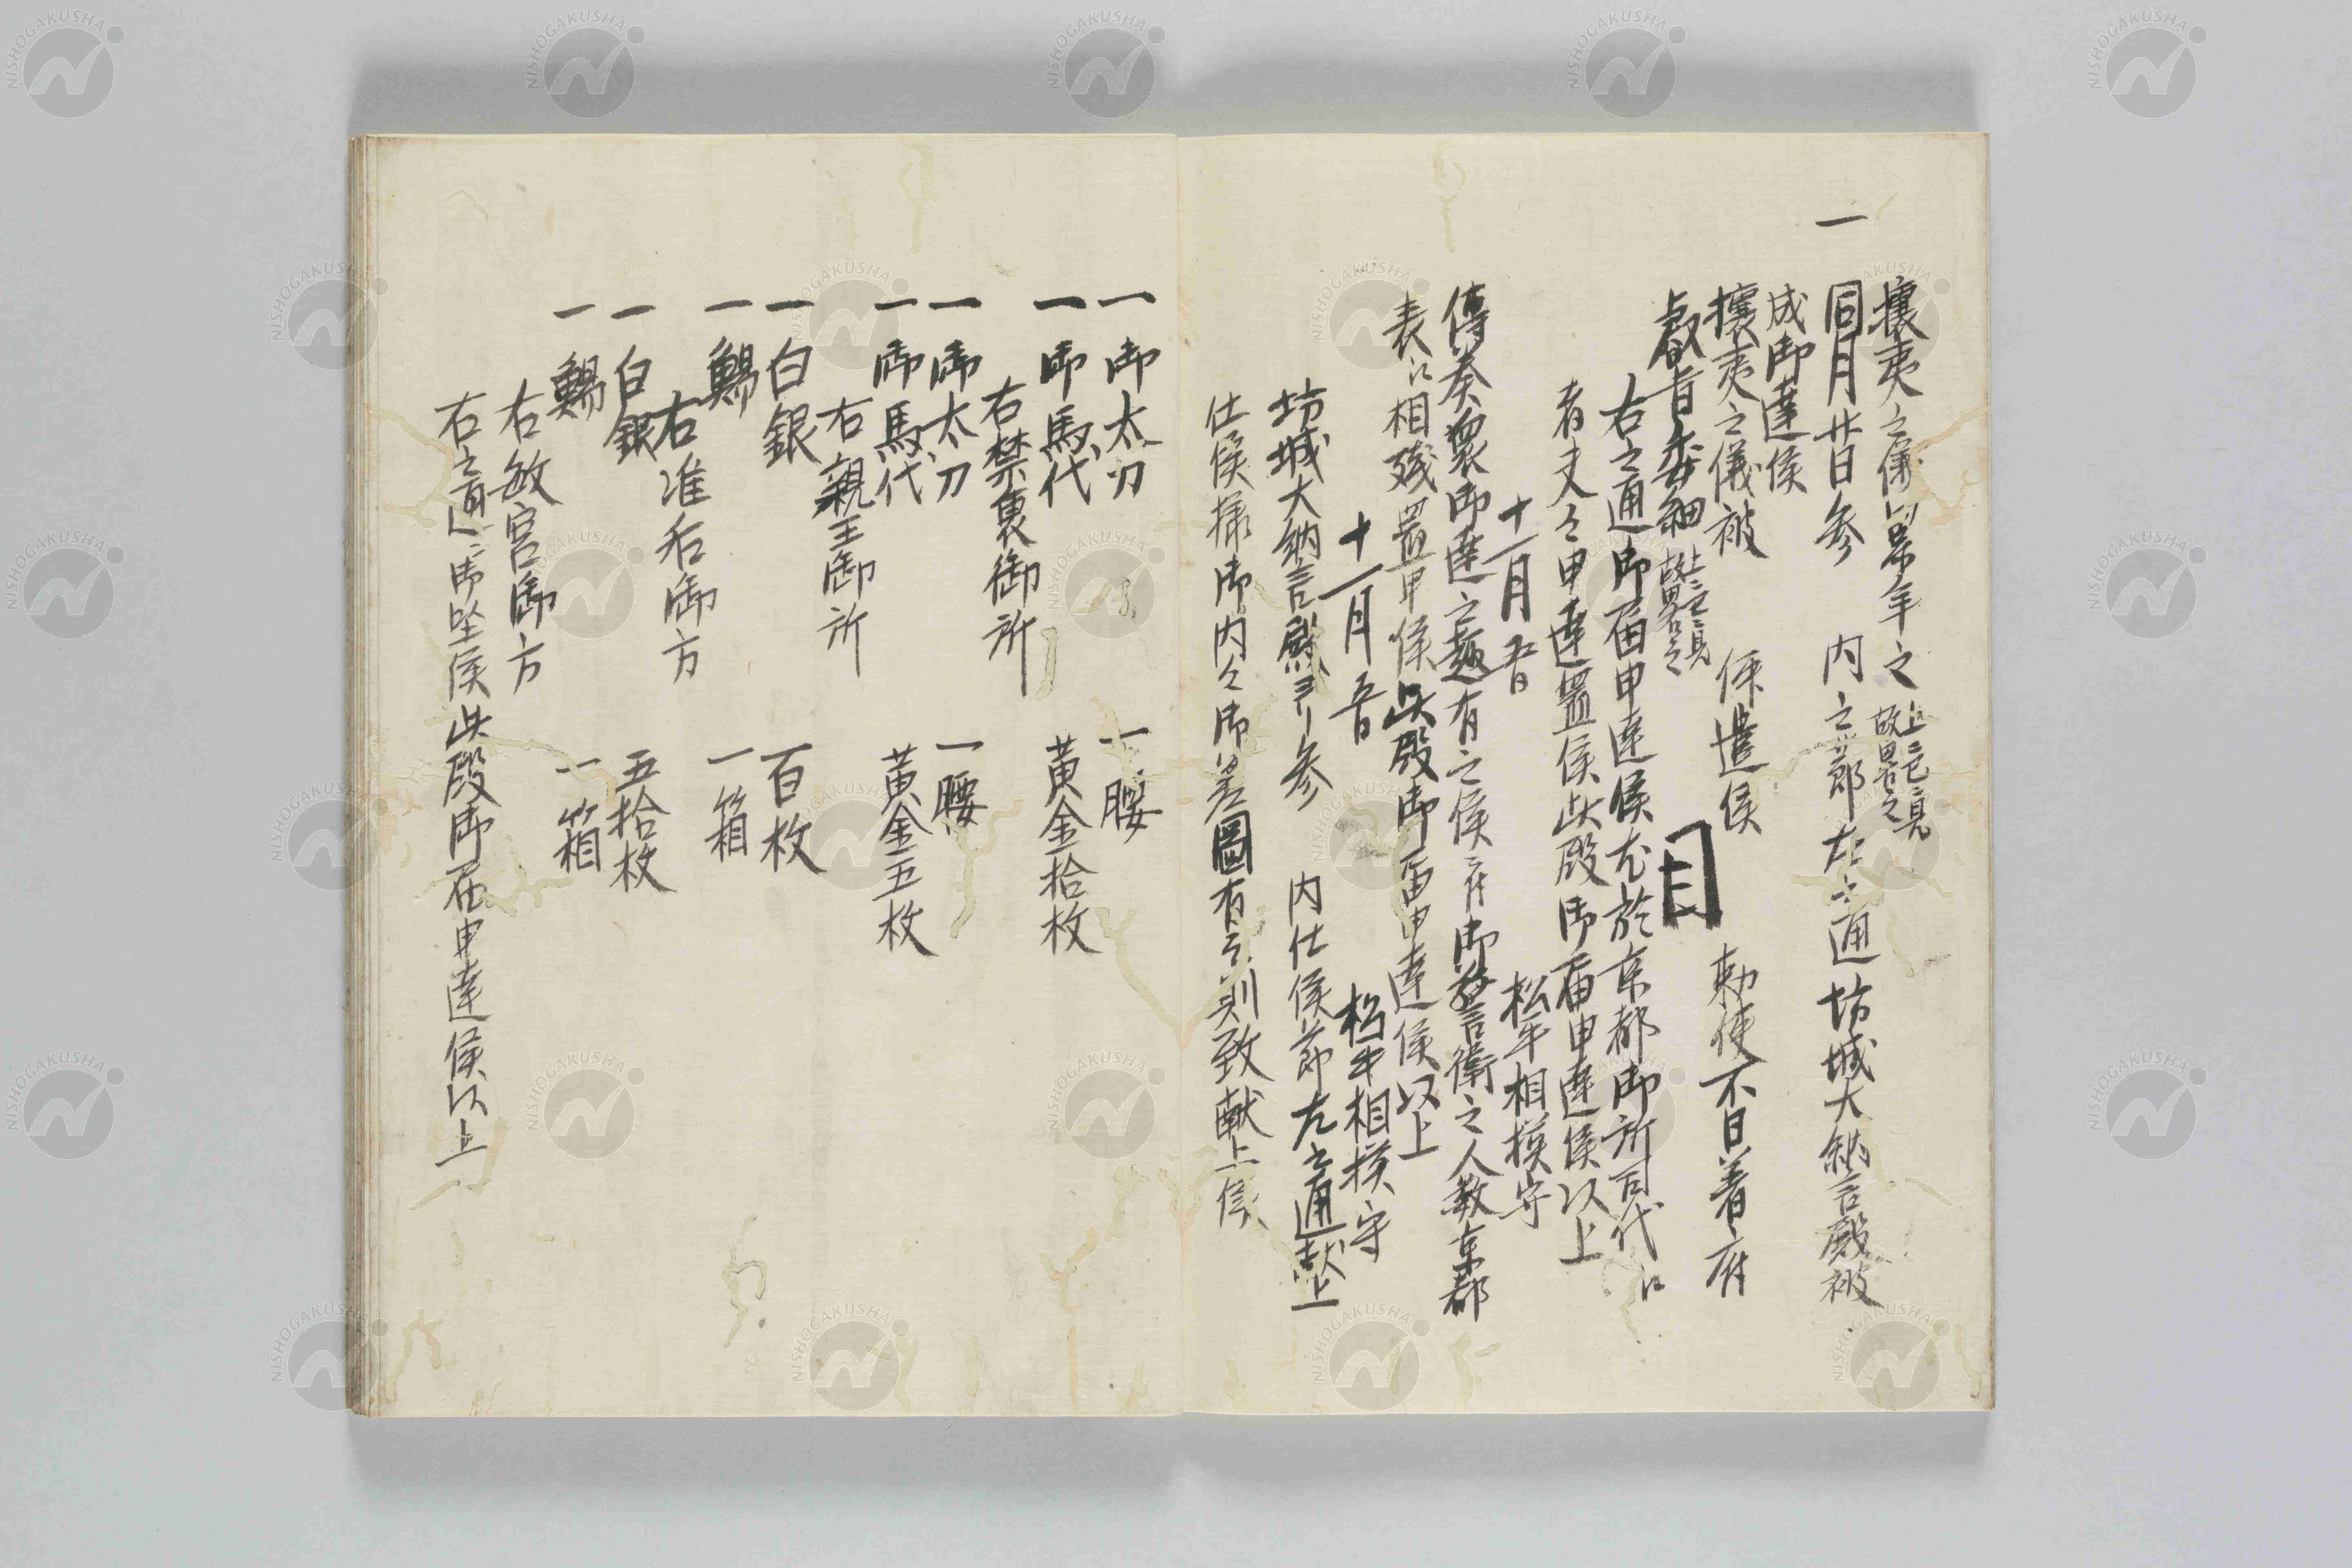 攘夷之儀ニ付当年之 上ニ已ニ見故畧之
一 同月廿日参 内之節左之通坊城大納言殿被
成御達候
攘夷之儀被 仰遣候 勅使不日着府
叡旨委細 上ニ已ニ見故畧之
右之通御届申達候尤於京都御所司代江
者夫々申達置候此段御届申達候以上
十一月五日 松平相模守
傳奏衆御達之趣有之候ニ付御警衛之人数京都
表江相殘置申候此段御届申達候以上
十一月五日 松平相模守
坊城大納言殿ヨリ参 内仕候節左之通献上
仕候様御内々御差圖有之則致献上候
一御太刀 一腰
一御馬代 黄金拾枚
右禁裏御所
一御太刀 一腰
一御馬代 黄金五枚
右親王御所
一白銀 百枚
一鯣 一箱
右准后御方
一白銀 五拾枚
一鯣 一箱
右敏宮御方
右之通ニ御坐候此段御届申達候以上
NISHOGAKUSHA